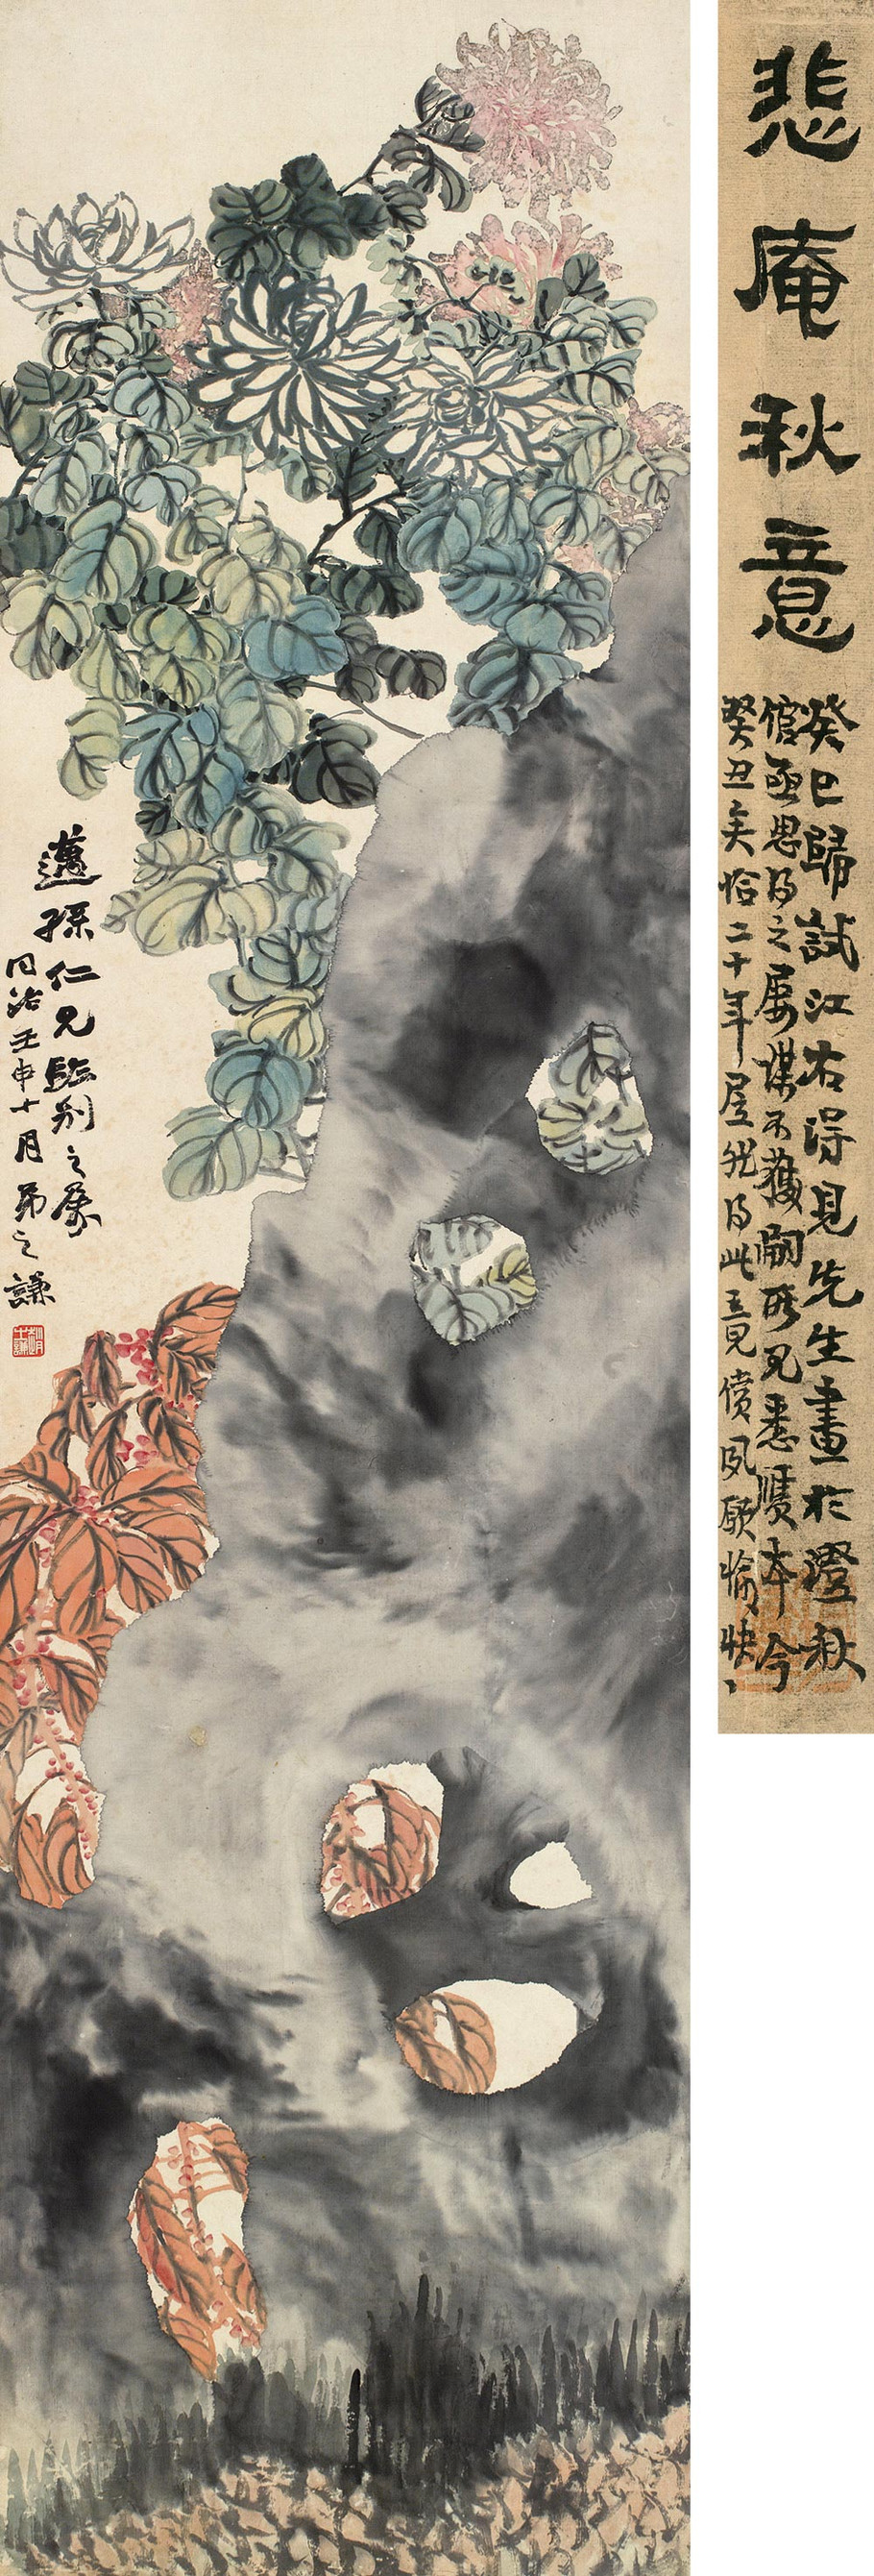 悲庵秋意
癸巳歸試江右得見先生畫於澄秋
館亟思得之屢謀不獲嗣所見悉贗本今
癸丑矣恰二十年居然得此三見償夙願愉快
邁孫仁兄臨別之屬
同治壬申十月弟之謙